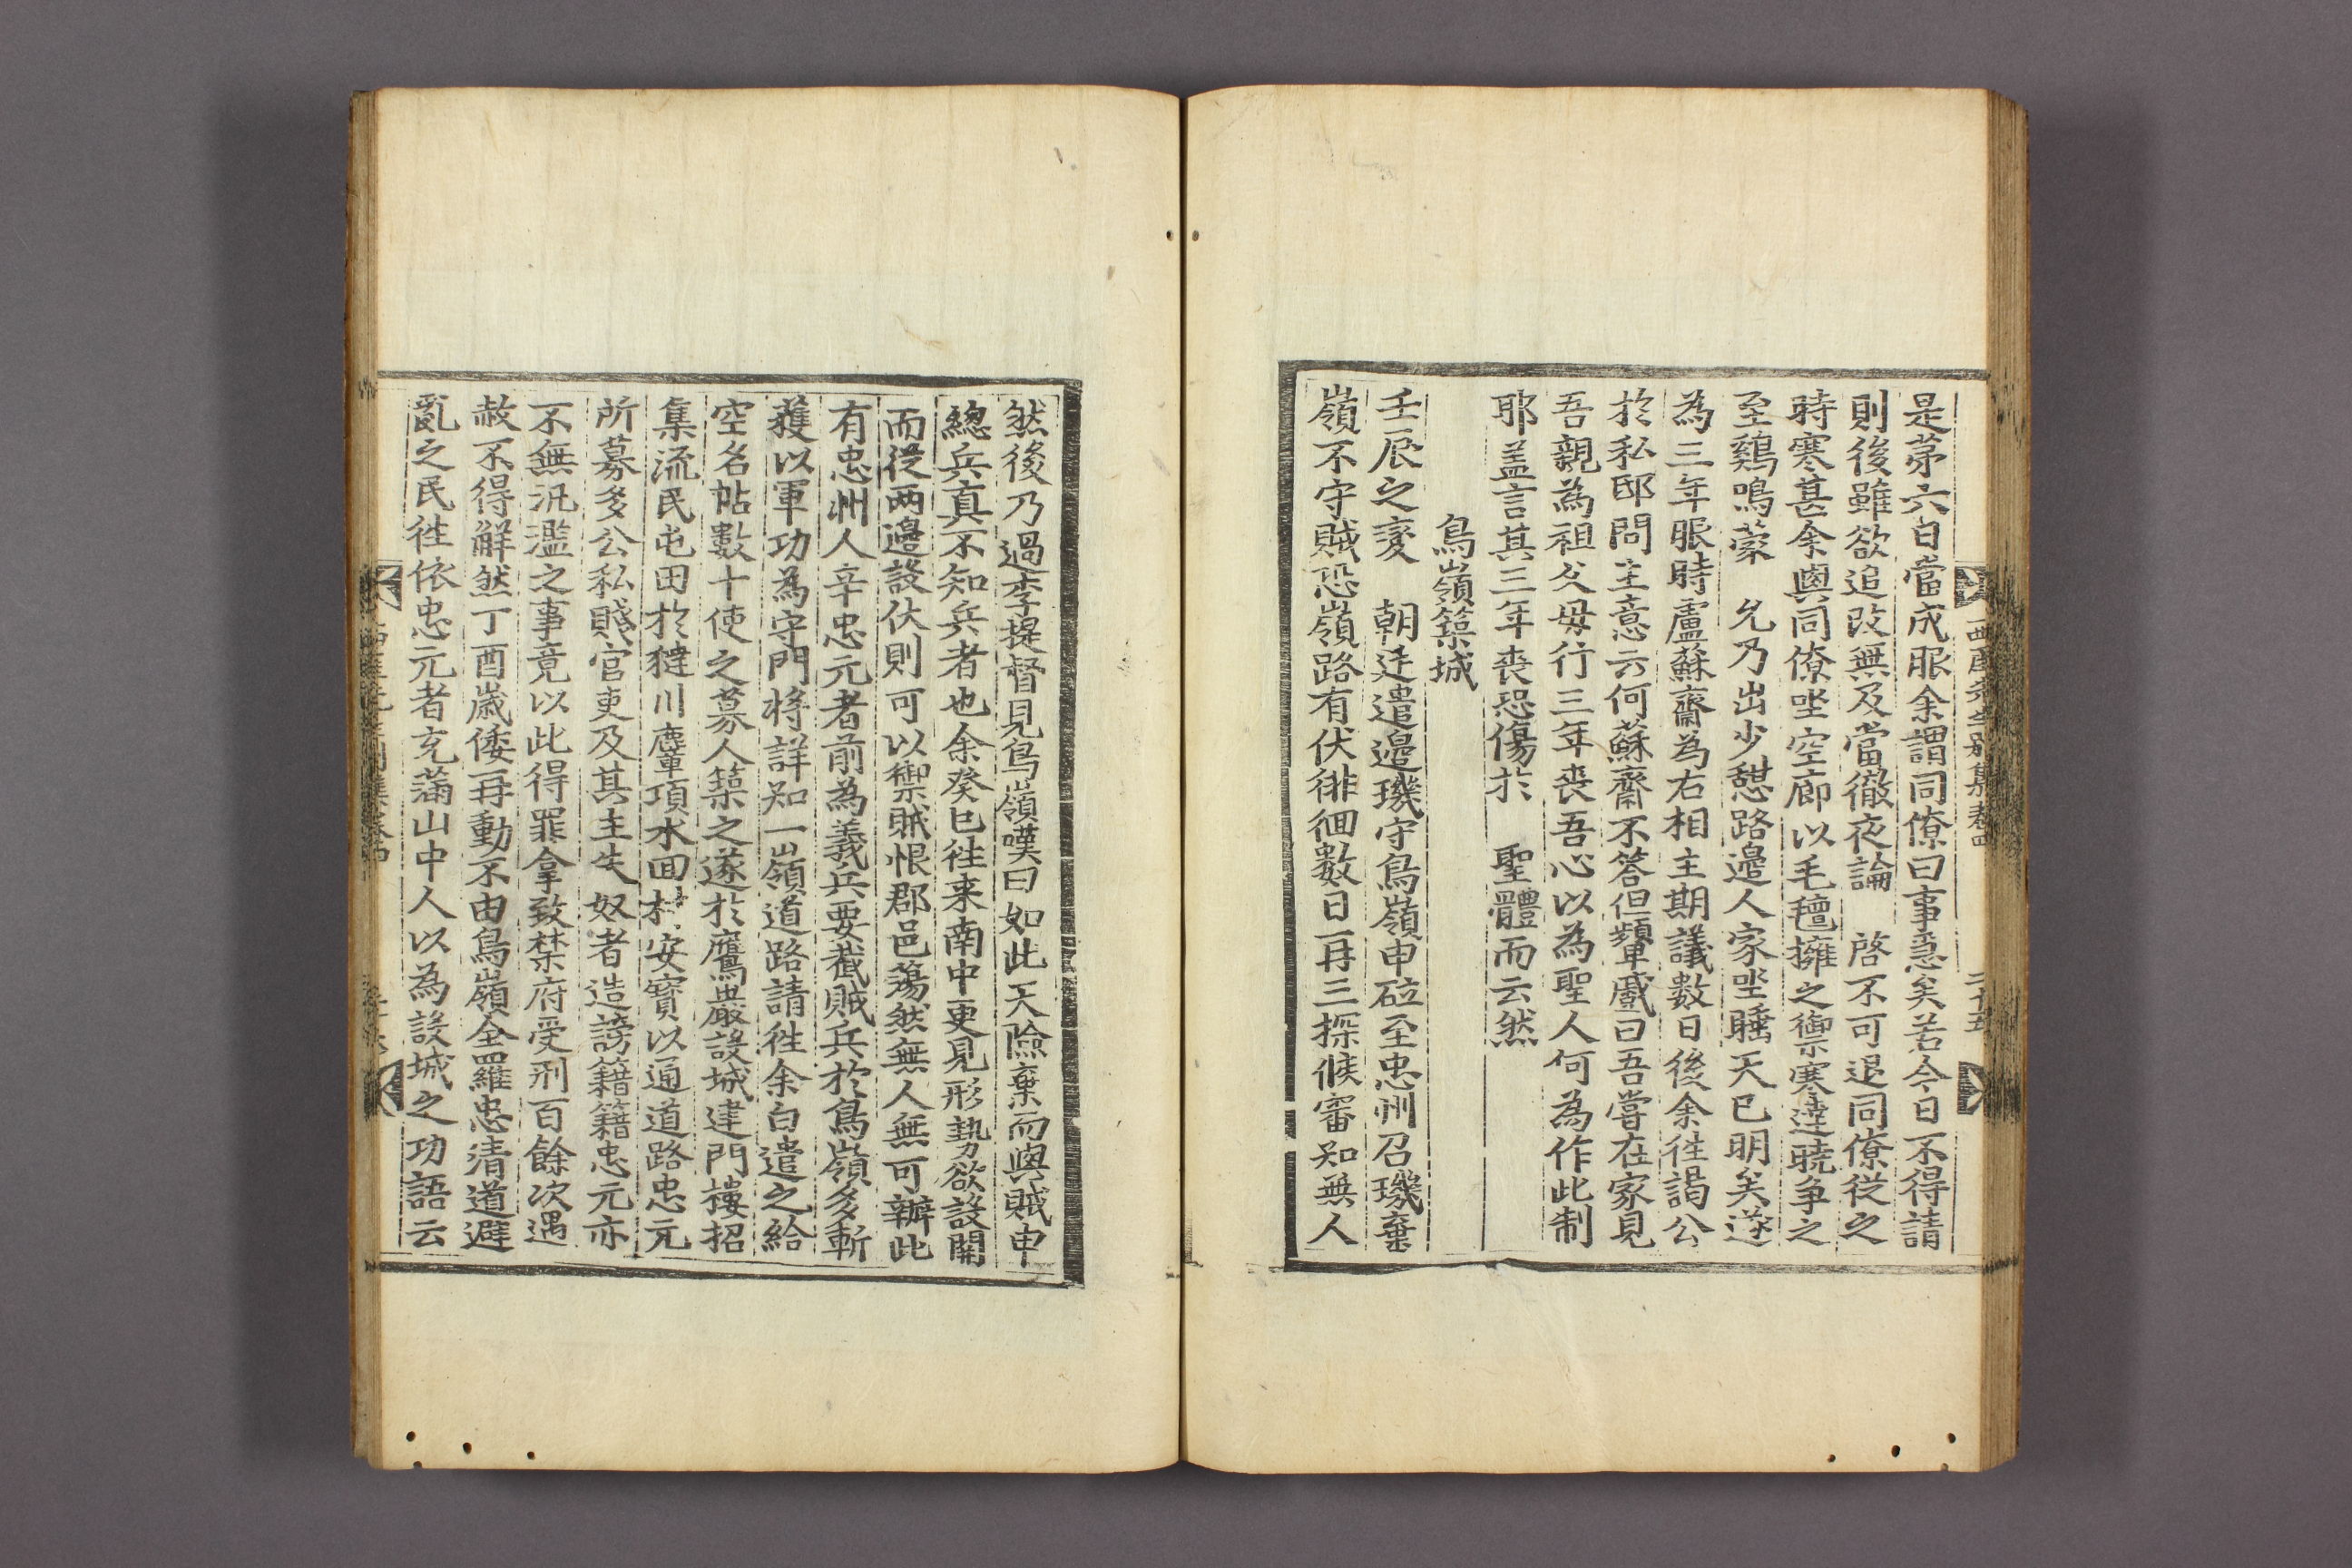 是苐六日當成服余謂同僚曰事急矣若今日不得請
則後雖欲追改無及當徹夜論 啓不可退同僚従之
時寒甚余與同僚坐空廊以毛氊擁之禦寒達曉争之
至鷄鳴蒙 允乃出少憇路邉人家坐睡天已明矣遂
為三年服時盧蘇齋為右相主期議數日後余徃謁公
於私邸問主意云何蘇齋不答但顰蹙曰吾嘗在家見
吾親為祖父母行三年喪吾心以為聖人何為作此制
耶盖言其三年喪恐傷於 聖體而云然
鳥嶺築城
壬辰之變 朝廷遣邉璣守鳥嶺申砬至忠州召璣棄
嶺不守賊恐嶺路有伏徘徊數日再三探候審知無人
西厓先生别集卷四
二十五
然後乃過李提督見鳥嶺嘆曰如此天險棄而與賊申
緫兵真不知兵者也余癸巳徃来南中更見形勢欲設關
而從两邉設伏則可以禦賊恨郡邑蕩然無人無可辦此
有忠州人辛忠元者前為義兵要截賊兵於鳥嶺多斬
䕶以軍功為守門将詳知一嶺道路請徃余白遣之給
空名帖數十使之募人築之遂於鷹巖設城建門樓招
集流民屯田於獐川麈項水回村安寳以通道路忠元
所募多公私賤官吏及其主失奴者造謗籍籍忠元亦
不無汎濫之事竟以此得罪拿致禁府受刑百餘次遇
赦不得觧然丁酉歳倭再動不由鳥嶺全羅忠清道避
亂之民徃依忠元者充滿山中人以為設城之功語云